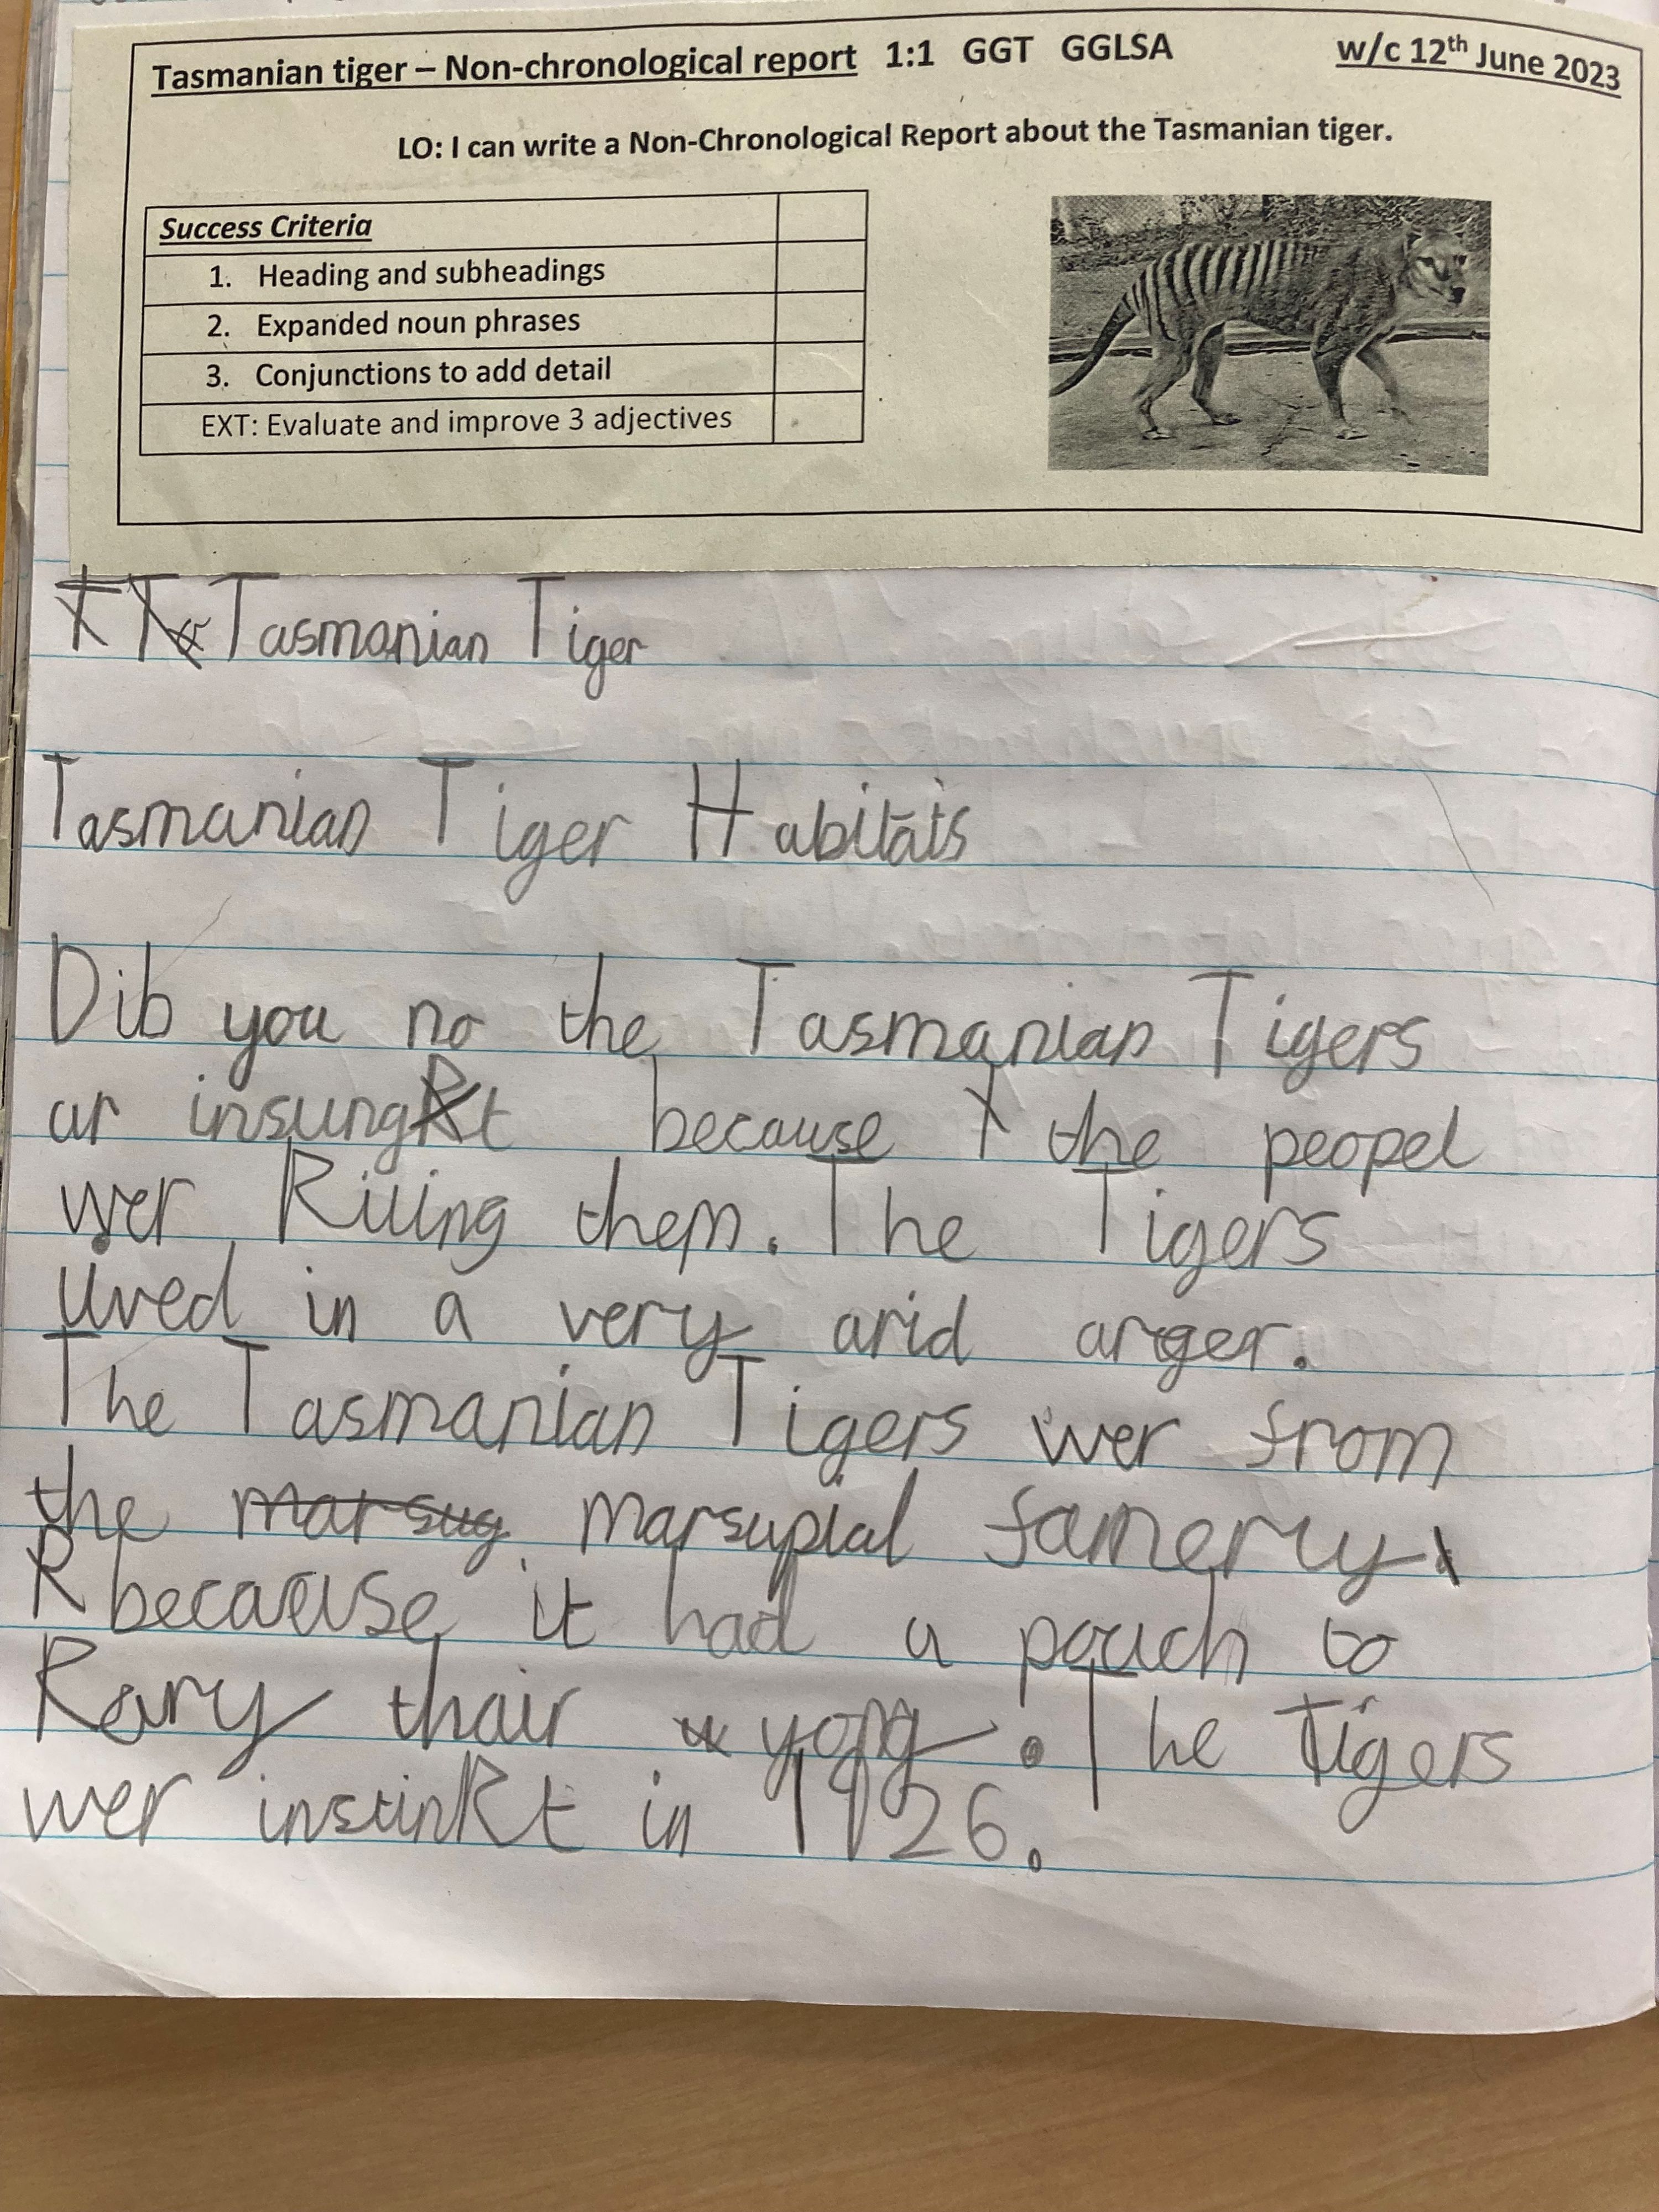 Tasmanian tiger – Non-chronological report 1:1 GGT GGLSA w/c 12th June 2023
LO: I can write a Non-Chronological Report about the Tasmanian tiger.
Success Criteria
1. Heading and subheadings
2. Expanded noun phrases
3. Conjunctions to add detail
EXT: Evaluate and improve 3 adjectives
Tasmanian Tiger
Tasmanian Tiger Habitats
Dib you no the Tasmanian Tigers
ar because the peopel
wer Killing them. The Tigers
lived in a very arid arger.
The Tasmanian Tigers wer from
the marsupial famerly
because it had a pouch to
Kary thair yong. The Tigers
wer instinkt in 1926.